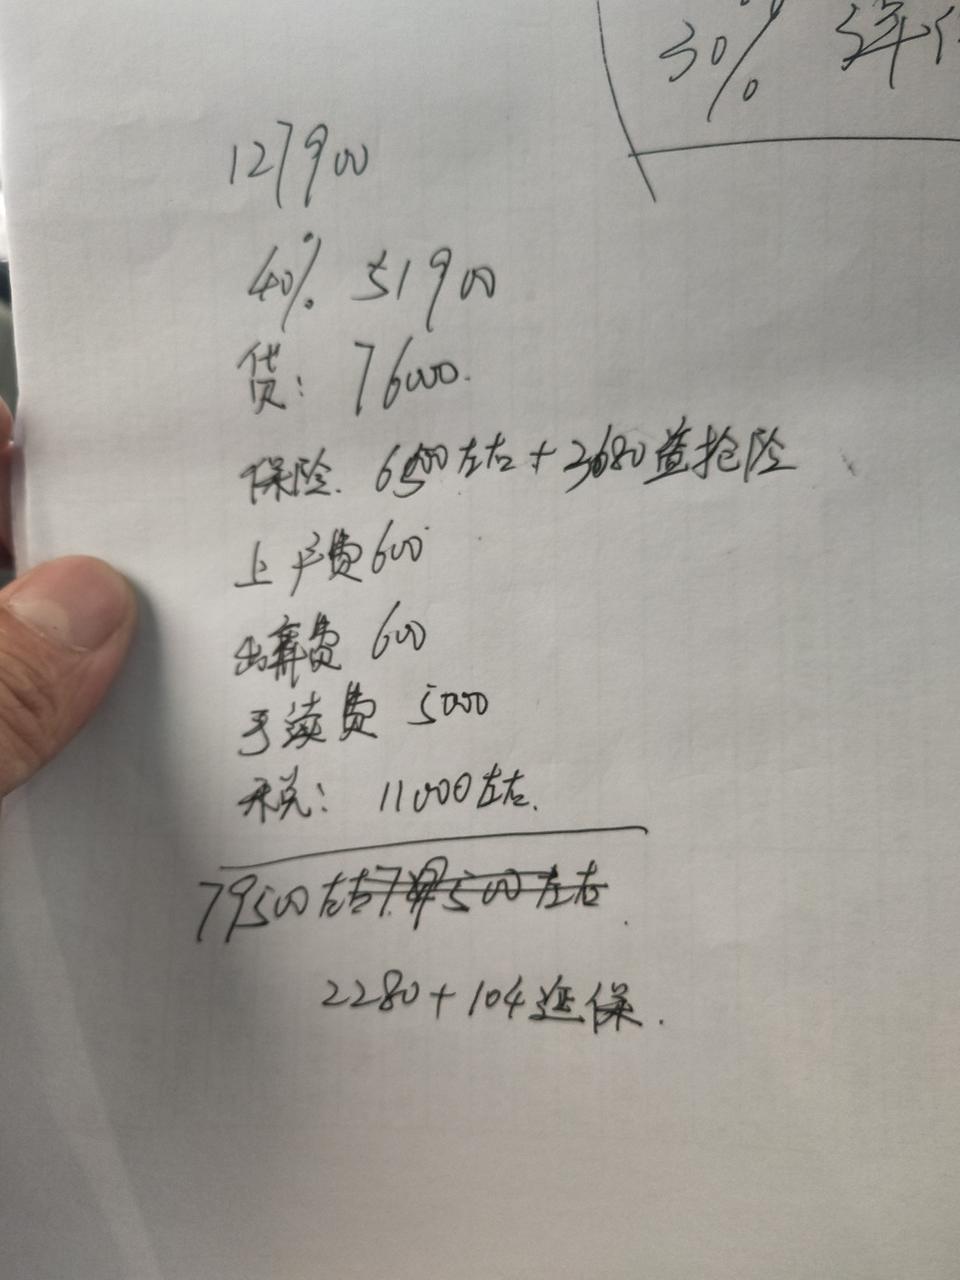 30% 3年
127900
40% 51900
贷: 76000.
保险. 6500左右+3680盗抢险
上户费600
出库费 600
手续费 5000
税: 11000左右.
79500左右
2280+104延保.